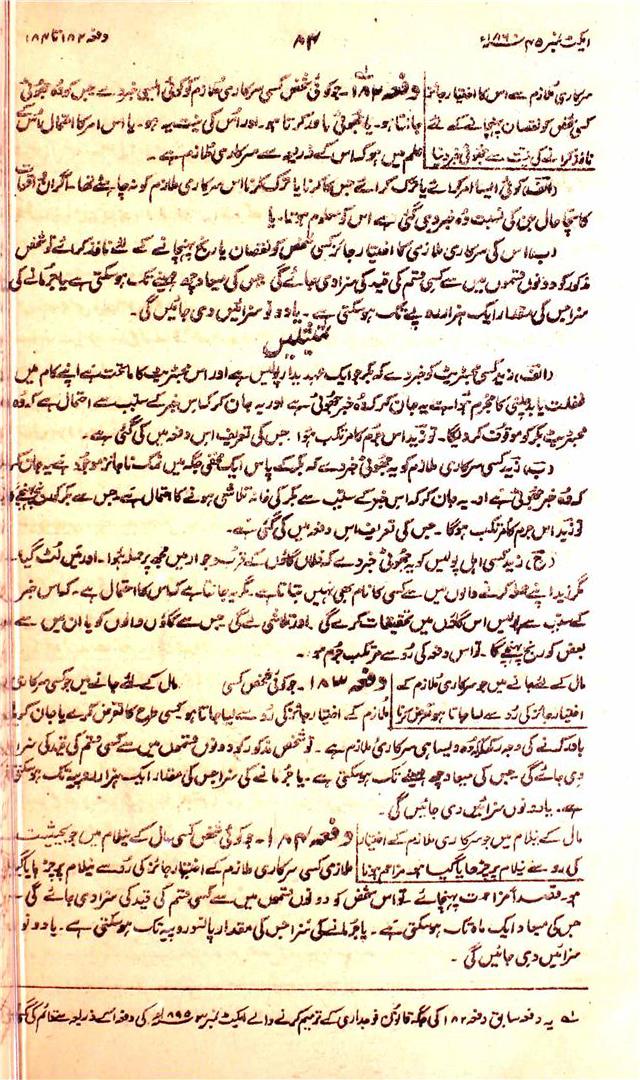 ایکٹ نمبر ۴۵ ۱۸۶۰ء ۸۳ دفعہ ۱۸۲ تا ۱۸۴
سرکاری ملازم سے اس کا اختیار جائز
کسی شخص کو نقصان پہنچانے کے لئے
نافذ کرانے کی نیت سے جھوٹی خبر دینا
دفعہ ۱۸۲ - جو کوئی شخص کسی سرکاری ملازم کو کوئی ایسی خبر دے جس کو وہ جھوٹی
جانتا ہو - یا جھوٹی باور کرتا ہو - اور اس کی نیت یہ ہو - یا اس امر کا احتمال اس کے
علم میں ہو کہ اس کے ذریعہ سے سرکاری ملازم سے -
(الف) کوئی ایسا امر کرائے یا ترک کرائے جس کا کرنا یا ترک کرنا اس سرکاری ملازم کو نہ چاہئے تھا - اگر ان واقعات
کا سچا حال جن کی نسبت وہ خبر دی گئی ہے اس کو معلوم ہوتا - یا
(ب) اس کی سرکاری ملازمی کا اختیار جائز کسی شخص کو نقصان یا رنج پہنچانے کے لئے نافذ کرائے تو شخص
مذکور کو دونوں قسموں میں سے کسی قسم کی قید کی سزا دی جائے گی جس کی میعاد چھ مہینے تک ہو سکتی ہے یا جرمانے کی
سزا جس کی مقدار ایک ہزار روپے تک ہو سکتی ہے - یا دونوں سزائیں دی جائیں گی -
تمثیلیں
(الف) زید کسی مجسٹریٹ کو خبر دے کہ بکر جو ایک عہدیدار پولیس ہے اور اس مجسٹریٹ کا ماتحت ہے اپنے کام میں
غفلت یا بدچلنی کا مجرم ہوا ہے یہ جان کر کہ وہ خبر جھوٹی ہے اور یہ جان کر کہ اس خبر کے سبب سے احتمال ہے کہ وہ
مجسٹریٹ بکر کو موقوف کر دیگا - تو زید اس جرم کا مرتکب ہوا جس کی تعریف اس دفعہ میں کی گئی ہے -
(ب) زید کسی سرکاری ملازم کو یہ جھوٹی خبر دے کہ بکر کے پاس ایک مخفی جگہ میں نمک ناجائز موجود ہے یہ جان کر
کہ وہ خبر جھوٹی ہے اور یہ جان کر کہ اس خبر کے سبب سے بکر کی خانہ تلاشی ہونے کا احتمال ہے جس سے بکر کو رنج پہنچے گا
تو زید اس جرم کا مرتکب ہوگا - جس کی تعریف اس دفعہ میں کی گئی ہے -
(ج) زید کسی اہل پولیس کو یہ جھوٹی خبر دے کہ فلاں گاؤں کے قرب و جوار میں مجھ پر حملہ ہوا - اور میں لُٹ گیا -
مگر زید اپنے حملہ کرنے والوں میں سے کسی کا نام بھی نہیں بتاتا ہے - مگر یہ جانتا ہے کہ اس کا احتمال ہے - کہ اس خبر
کے سبب سے پولیس اس گاؤں میں تحقیقات کرے گی اور تلاشی لے گی جس سے گاؤں والوں کو یا ان میں سے
بعض کو رنج پہنچے گا - تو اس دفعہ کی رو سے مرتکب جرم ہو -
مال کے لئے جانے میں جو سرکاری ملازم کے
اختیار جائز کی رو سے لیا جاتا ہو تعرض کرنا
دفعہ ۱۸۳ - جو کوئی شخص کسی مال کے لئے جانے میں جو کسی سرکاری
ملازم کے اختیار جائز کی رو سے لیا جاتا ہو کسی طرح کا تعرض کرے یہ جان کر یا
باور کرنے کی وجہ رکھ کر کہ وہ ویسا ہی سرکاری ملازم ہے - تو شخص مذکور کو دونوں قسموں میں سے کسی قسم کی قید کی سزا
دی جائے گی - جس کی میعاد چھ مہینے تک ہو سکتی ہے - یا جرمانے کی سزا جس کی مقدار ایک ہزار روپیہ تک ہو سکتی
ہے - یا دونوں سزائیں دی جائیں گی -
مال کے نیلام میں جو سرکاری ملازم کے اختیار
کی رو سے نیلام پر چڑھایا گیا ہو - مزاحم ہونا
دفعہ ۱۸۴ - جو کوئی شخص کسی مال کے نیلام میں جو بحیثیت
ملازمی کسی سرکاری ملازم کے اختیار جائز کی رو سے نیلام پر چڑھایا گیا
ہو - قصداً مزاحمت پہنچائے تو اس شخص کو دونوں قسموں میں سے کسی قسم کی قید کی سزا دی جائے گی -
جس کی میعاد ایک ماہ تک ہو سکتی ہے - یا جرمانے کی سزا جس کی مقدار پانسو روپیہ تک ہو سکتی ہے - یا دونو
سزائیں دی جائیں گی -
یہ دفعہ سابق دفعہ ۱۸۲ کی جگہ قانون فوجداری کے ترمیم کرنے والے ایکٹ نمبر ۳ ۱۸۹۵ء کی دفعہ ۱ کے ذریعہ سے قائم کی گئی